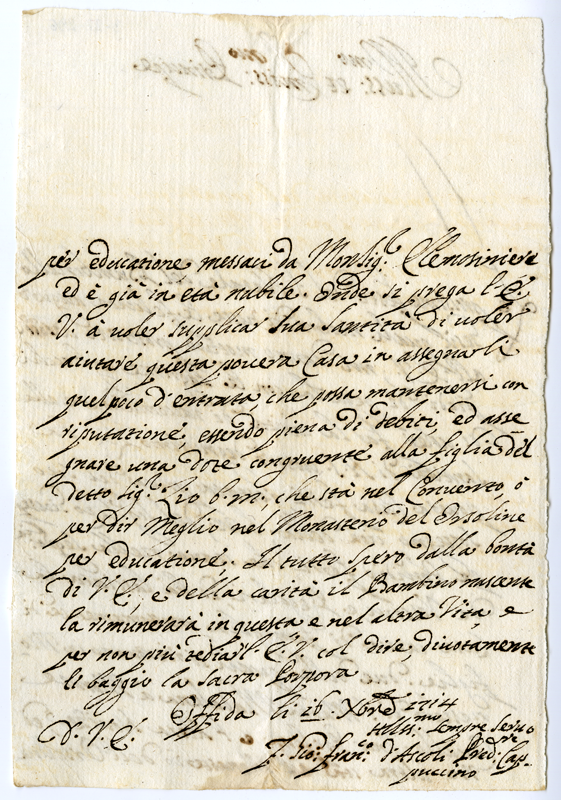 per educatione messaci da Monsig.r Elemosiniere
ed è già in età nubile. Onde si prega l'E.
V. à voler supplicar Sua Santità di voler
aiutare questa povera Casa in assegnarli
quelpoco d'entrata, che possa mantenersi con
riputatione, essendo piena di debiti, ed asse
gnare una dote congruente alla figlia del
detto Sig.r Zio b.m. che stà nel Convento, ò
per dir Meglio nel Monastero del Orsoline
per educatione. Il tutto spero dalla bontà
di V.E., e della carità il Bambino nascente
la rimunerarà in questa e nel altra Vita, e
per non più tediar l'E.V. col dire, divotamente
li baggio la Sacra Porpora
Offida li 26 Xbre 1714
D. V. E.
sempre servo
F. Gio: Fran.co d'Ascoli Pred.re Cap
puccino